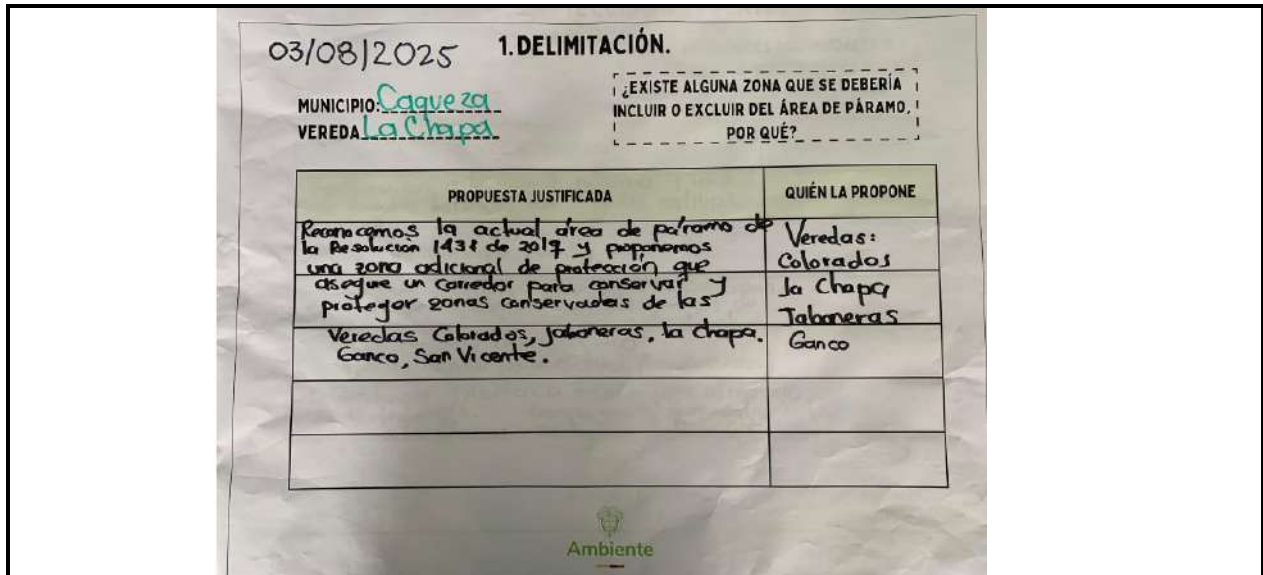 03/08/2025
1.DELIMITACIÓN.
MUNICIPIO: Caqueza
VEREDA La Chapa
¿EXISTE ALGUNA ZONA QUE SE DEBERÍA
INCLUIR O EXCLUIR DEL ÁREA DE PÁRAMO,
POR QUÉ?
PROPUESTA JUSTIFICADA
QUIÉN LA PROPONE
Reconocemos la actual área de páramo de
la Resolución de 2017 y proponemos
una zona adicional de protección que
asegue un corredor para conservar y
proteger zonas conservadas de las
Veredas Colorados, Jaboneras, la chapa.
Ganco, San Vicente.
Veredas:
Colorados
la Chapa
Jaboneras
Ganco
Ambiente